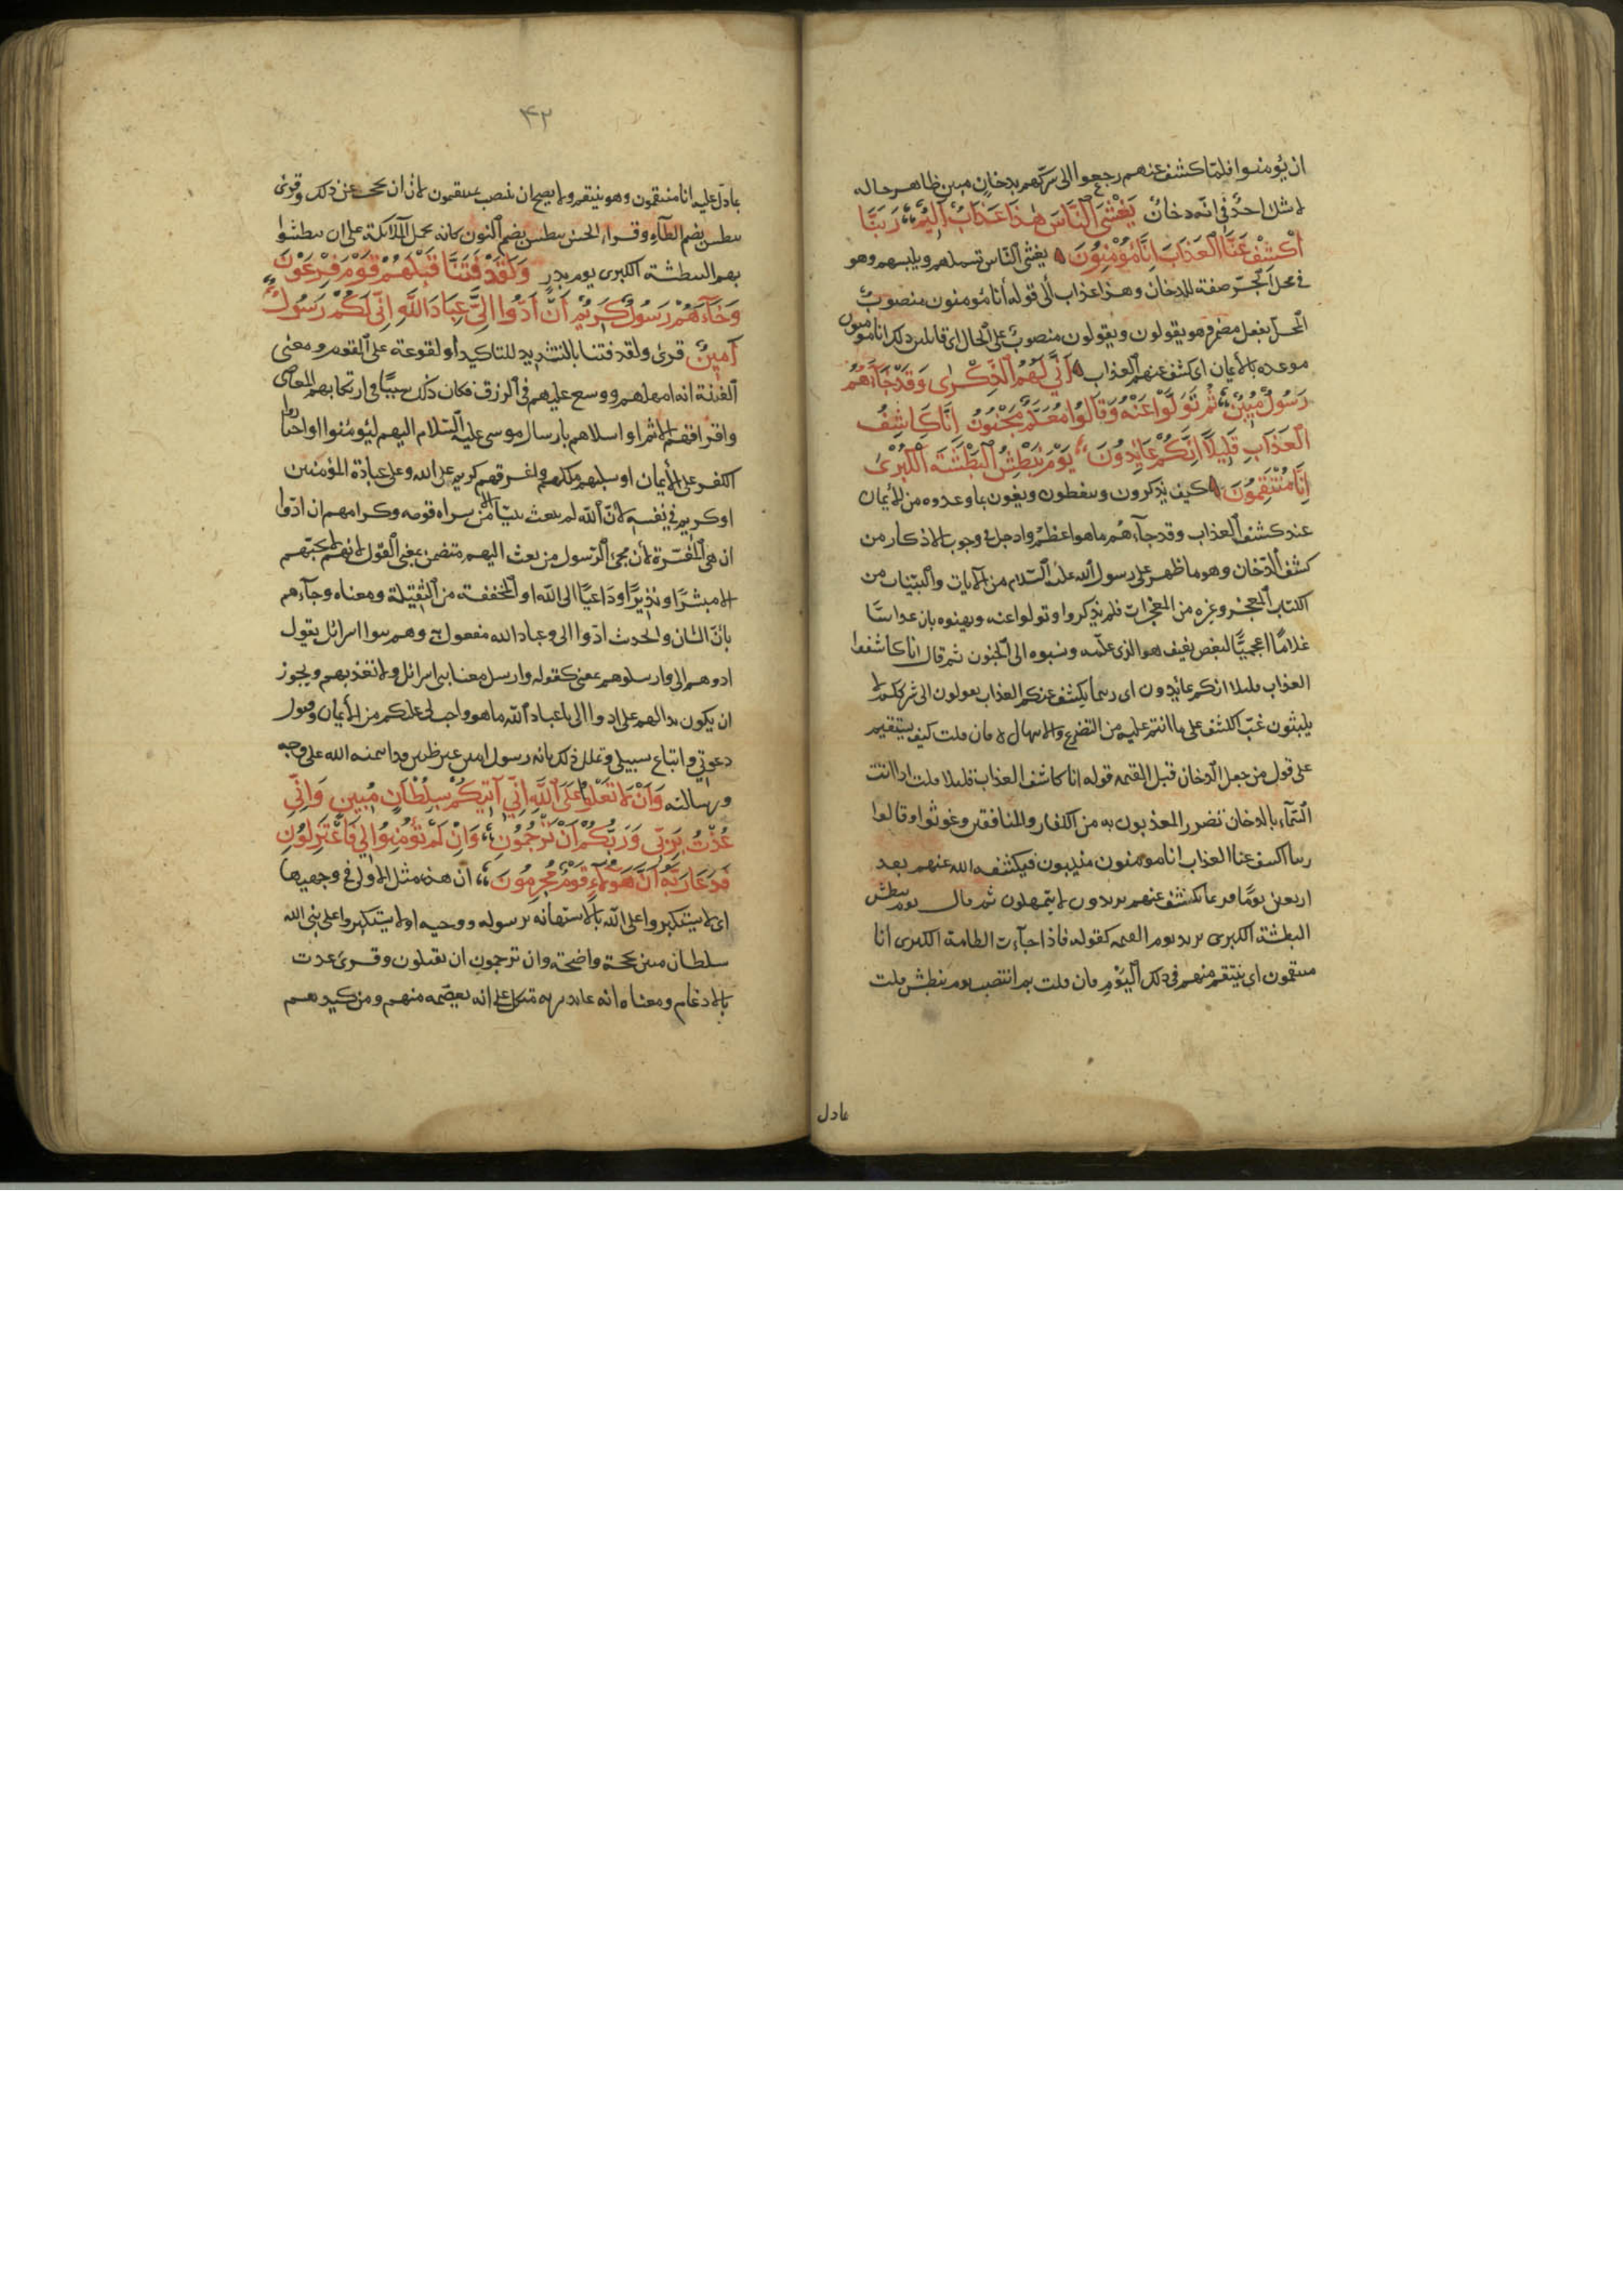 ان يؤمنوا فلمّا كشف عنهم رجعوا الى شركهم بدخان مبين ظاهر حاله
لا شك احدٌ فى انّه دخانٌ يَغْشَى ٱلنَّاسَ هٰذَا عَذَابٌ اَلِيمٌ رَبَّنَا
اكْشِفْ عَنَّا الْعَذَابَ اِنَّا مُؤْمِنُونَ يغشى النّاس تشملهم ويلبسهم وهو
فى محل الجّر صفة للدخان وهذا عذاب الى قوله انا مؤمنون منصوب
المحل بفعل مضمر وهو يقولون ويقولون منصوبٌ على الحال اى قايلين ذلك انا مومنون
موعده بالأيمان ان كشف عنهم العذاب اَنَّى لَهُمُ الذِّكْرٰى وَقَدْ جَآءَهُمْ
رَسُولٌ مُبِينٌ ثُمَّ تَوَلَّوْا عَنْهُ وَقَالُوا مُعَلَّمٌ مَجْنُونٌ اِنَّا كَاشِفُ
الْعَذَابِ قَلِيلًا اِنَّكُمْ عَايِدُونَ يَوْمَ نَبْطِشُ الْبَطْشَةَ الْكُبْرٰى
اِنَّا مُنْتَقِمُونَ كيف يذكرون ويتعظون ويفون بما وعدوه من الأيمان
عند كشف العذاب وقد جآءهُم ما هو اعظم وادخل فى وجوب الاذكار من
كشف الدّخان وهو ما ظهر على رسول الله عليه السّلام من الآيات والبيّنات من
الكتاب المعجز وغيره من المعجزات فلم يذكروا وتولوا عنه وبهتوه بان عداسًا
غلامًا اعجميًّا لبعض ثقيف هو الذى علّمه ونسبوه الى الجنون ثم قال انا كاشفوا
العذاب قليلا انكم عايدون اى ريثما يكشف عنكم العذاب يعودون الى شرككم لا
يلبثون غبّ الكشف على ما انتم عليه من التضرع والابتهال فان قلت كيف يستقيم
على قول من جعل الدّخان قبل القيمه قوله انا كاشف العذاب قليلا قلت اذا اتت
السّمآء بالدخان تضور المعذبون به من الكفار والمنافقين وغوثوا وقالوا
ربنا اكشف عنا العذاب انا مومنون منيبون فيكشفه الله عنهم بعد
اربعين يومًا فريثما يكشفه عنهم يرتدون لا يتمهلون ثم قال يوم نبطش
البطشة الكبرى يريد يوم القيمه كقوله فاذا جآءت الطامة الكبرى انا
منتقمون اى ينتقم منهم فى ذلك اليَوْم فان قلت بم انتصب يوم نبطش قلت
عادل
۴۲
بما دلّ عليه انا منتقمون وهو ينتقم ولا يصح ان ينصب بمنتقمون لان ان تحجب عن ذلك وقرى
نبطش بضم الطآءِ وقراء الحسن نبطش بضم النون كانه يحمل الملائكة على ان يبطشوا
بهم البطشة الكبرى يوم بدر وَلَقَدْ فَتَنَّا قَبْلَهُمْ قَوْمَ فِرْعَوْنَ
وَجَآءَهُمْ رَسُولٌ كَرِيمٌ اَنْ اَدُّوا اِلَىَّ عِبَادَ اللّٰهِ اِنِّى لَكُمْ رَسُولٌ
اَمِينٌ قرئ ولقد فتنا بالتشديد للتاكيد أو لوقوعه على القوم ومعنى
الفتنة انه امهلهم ووسع عليهم فى الرزق فكان ذلك سببًا فى ارتكابهم المعاصى
واقترافهم الاثم او ابتلاهم بارسال موسى عليه السّلام اليهم ليؤمنوا اواختاروا
الكفر على الأيمان او سلبهم ملكهم واغرقهم كريم على الله وعلى عباده المؤمنين
او كريم فى نفسه لانّ الله لم يبعث نبيّا الا من سراة قومه وكرامهم ان ادّوا
ان هى المفسّرة لأن مجئ الرّسول من بعث اليهم متضمن معنى القول لانه لا يجيئهم
الا مبشرًا و نذيرًا وداعيًا الى الله او المخففة من الثقيلة ومعناه وجآءهم
بانّ الشان والحديث ادّوا الى وعباد الله مفعول به وهم بنوا اسرائل يقول
ادوهم الى وارسلوهم معى كقوله وارسل معنا بنى اسرائل ولا تعذبهم ويجوز
ان يكون نداء لهم على ادوا الى يا عباد الله ما هو واجب لى عليكم من الأيمان وقبول
دعوتى واتباع سبيلى وعلل ذلك بانه رسول امين غير ظنين قد ائتمنه الله على وحيه
ورسالته وَاَنْ لَا تَعْلُوا عَلَى ٱللَّهِ اِنِّى اٰتِيكُمْ بِسُلْطَانٍ مُبِينٍ وَاِنِّى
عُذْتُ بِرَبِّى وَرَبِّكُمْ اَنْ تَرْجُمُونِ وَاِنْ لَمْ تُؤْمِنُوا لِى فَاعْتَزِلُونِ
فَدَعَا رَبَّهُ اَنَّ هٰؤُلَآءِ قَوْمٌ مُجْرِمُونَ ان هذه مثل الاولى فى وجهيها
اى لا يستكبروا على الله بالاستهانه برسوله ووحيه او لا يستكبروا على نبى الله
سلطان مبين بحجة واضحة وان ترجمون ان تقتلون وقرئ عدت
بالادغام ومعناه انه عايد بربه متكل على انه يعصمه منهم ومن كيدهم